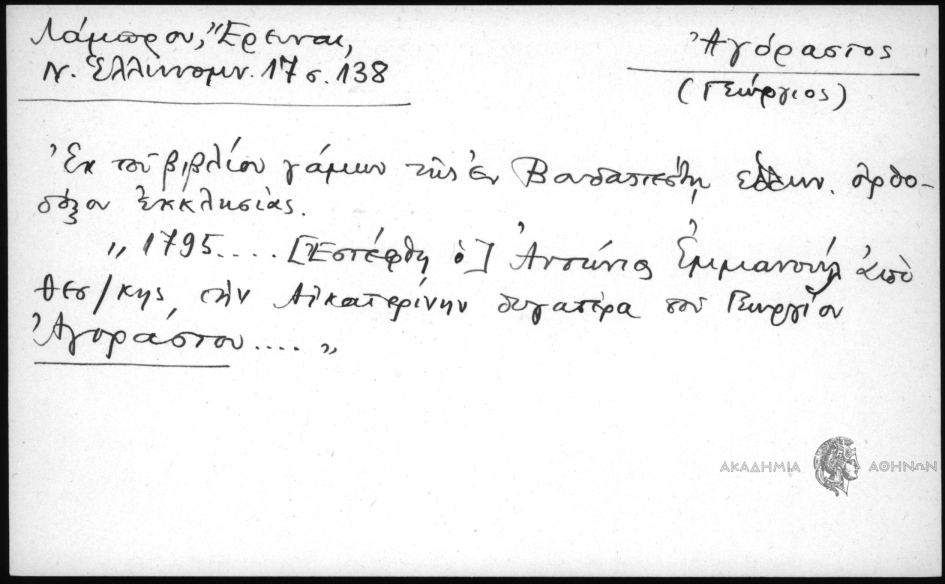 Λάμπρου, Ἔρευναι,
Ν. Ἑλληνομν. 17 σ. 138
Ἀγόραστος
(Γεώργιος)
Ἐκ τοῦ βιβλίου γάμων τῆς ἐν Βουδαπέστῃ ἑλλην. ὀρθο-
δόξου ἐκκλησίας.
„ 1795.... [Ἐστέφθη ὁ] Ἀντώνιος Ἐμμανουὴλ ἀπὸ
Θεσ/κης τὴν Αἰκατερίνην θυγατέρα τοῦ Γεωργίου
Ἀγοράστου.... „
ΑΚΑΔΗΜΙΑ ΑΘΗΝΩΝ